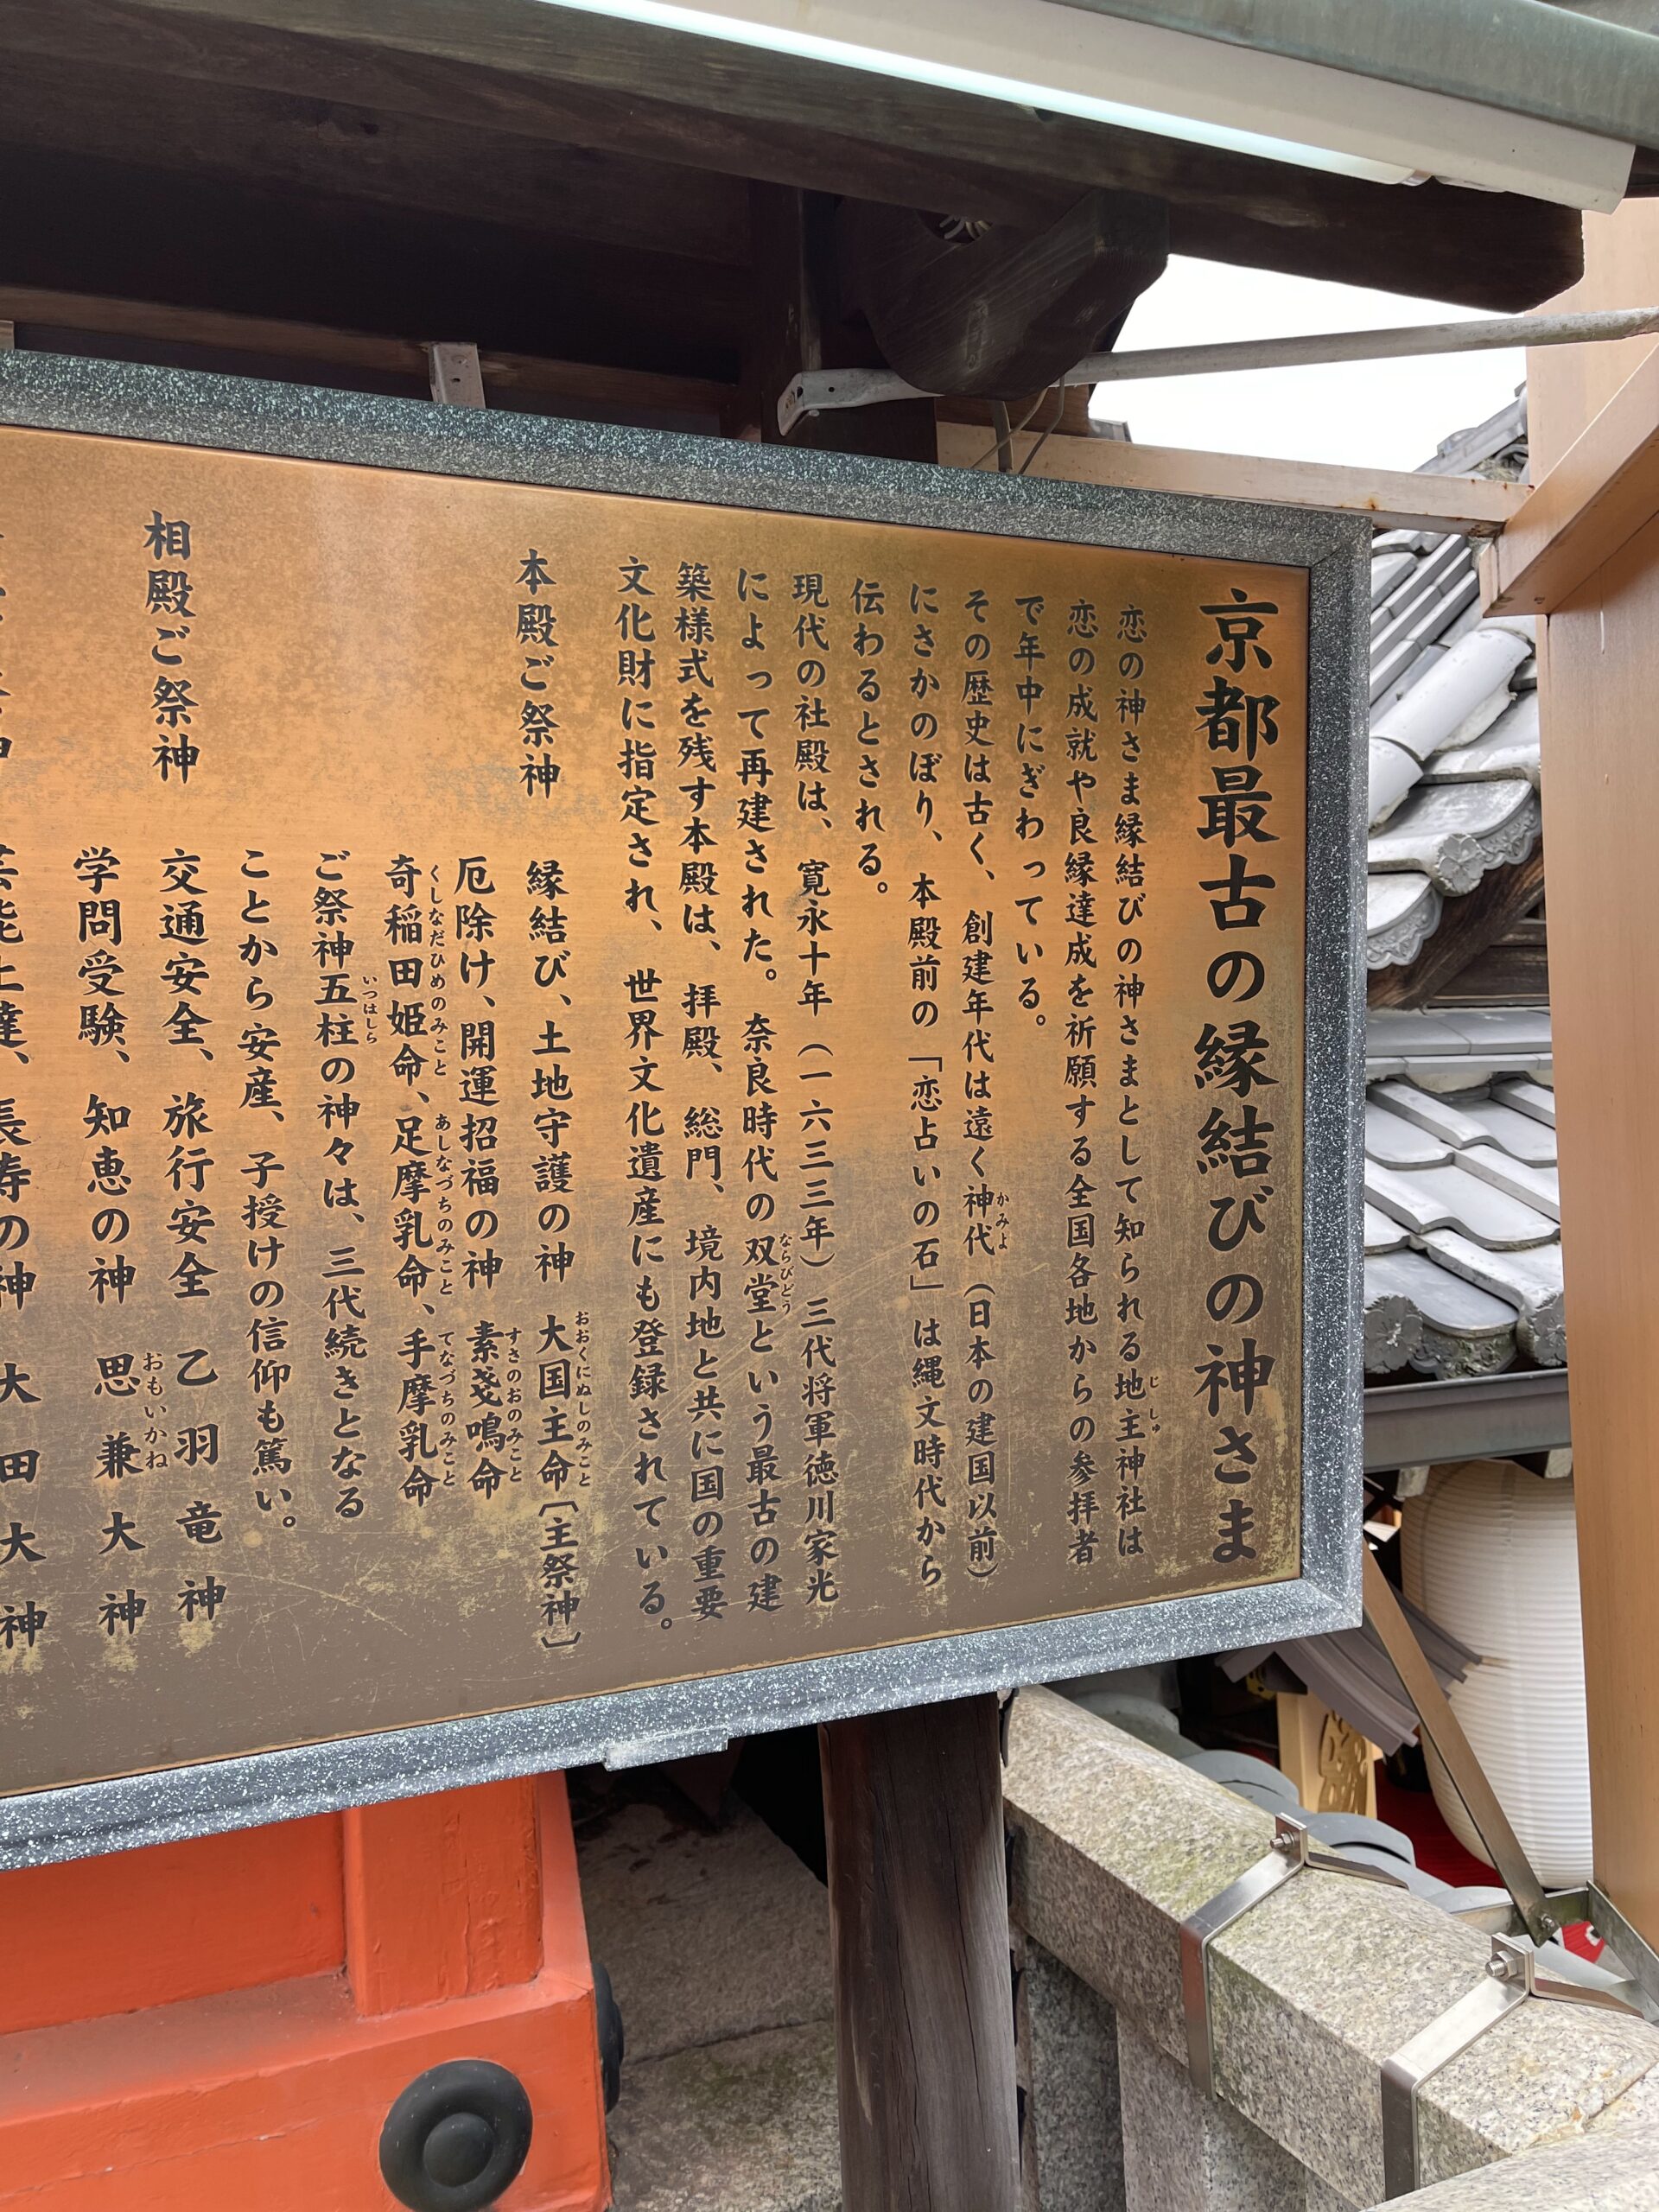 京都最古の縁結びの神さま
恋の神さま縁結びの神さまとして知られる地主神社は
じしゅ
恋の成就や良縁達成を祈願する全国各地からの参拝者
で年中にぎわっている。
その歴史は古く、創建年代は遠く神代（日本の建国以前）
かみよ
にさかのぼり、本殿前の「恋占いの石」は縄文時代から
伝わるとされる。
現代の社殿は、寛永十年（一六三三年）三代将軍徳川家光
によって再建された。奈良時代の双堂という最古の建
ならびどう
築様式を残す本殿は、拝殿、総門、境内地と共に国の重要
文化財に指定され、世界文化遺産にも登録されている。
本殿ご祭神 縁結び、土地守護の神 大国主命〔主祭神〕
おおくにぬしのみこと
厄除け、開運招福の神 素戔嗚命
すさのおのみこと
奇稲田姫命、足摩乳命、手摩乳命
くしなだひめのみこと あしなづちのみこと てなづちのみこと
ご祭神五柱の神々は、三代続きとなる
いつはしら
ことから安産、子授けの信仰も篤い。
相殿ご祭神 交通安全、旅行安全 乙羽竜神
学問受験、知恵の神 思兼大神
おもいかね
芸能上達、長寿の神 大田大神